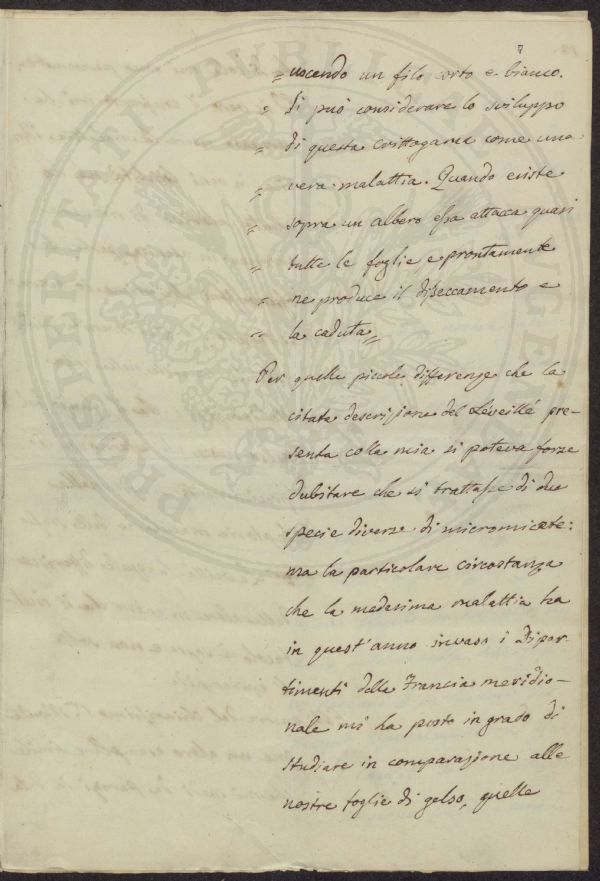 „ uscendo un filo corto e bianco.
„ Si può considerare lo sviluppo
„ di questa crittogama come una
„ vera malattia. Quando existe
„ sopra un albero essa attacca quasi
„ tutte le foglie, e prontamente
„ ne produce il disseccamento e
„ la caduta„
Per quelle piccole differenze che la
citata descrizione del Léveillé pre-
senta colla mia si poteva forze
dubitare che si trattasse di due
specie diverse di micromicete:
ma la particolare circostanza
che la medesima malattia ha
in quest'anno invaso i Dipar
timenti della Francia meridio-
nale mi ha posto in grado di
studiare in comparazione alle
nostre foglie di gelso, quelle